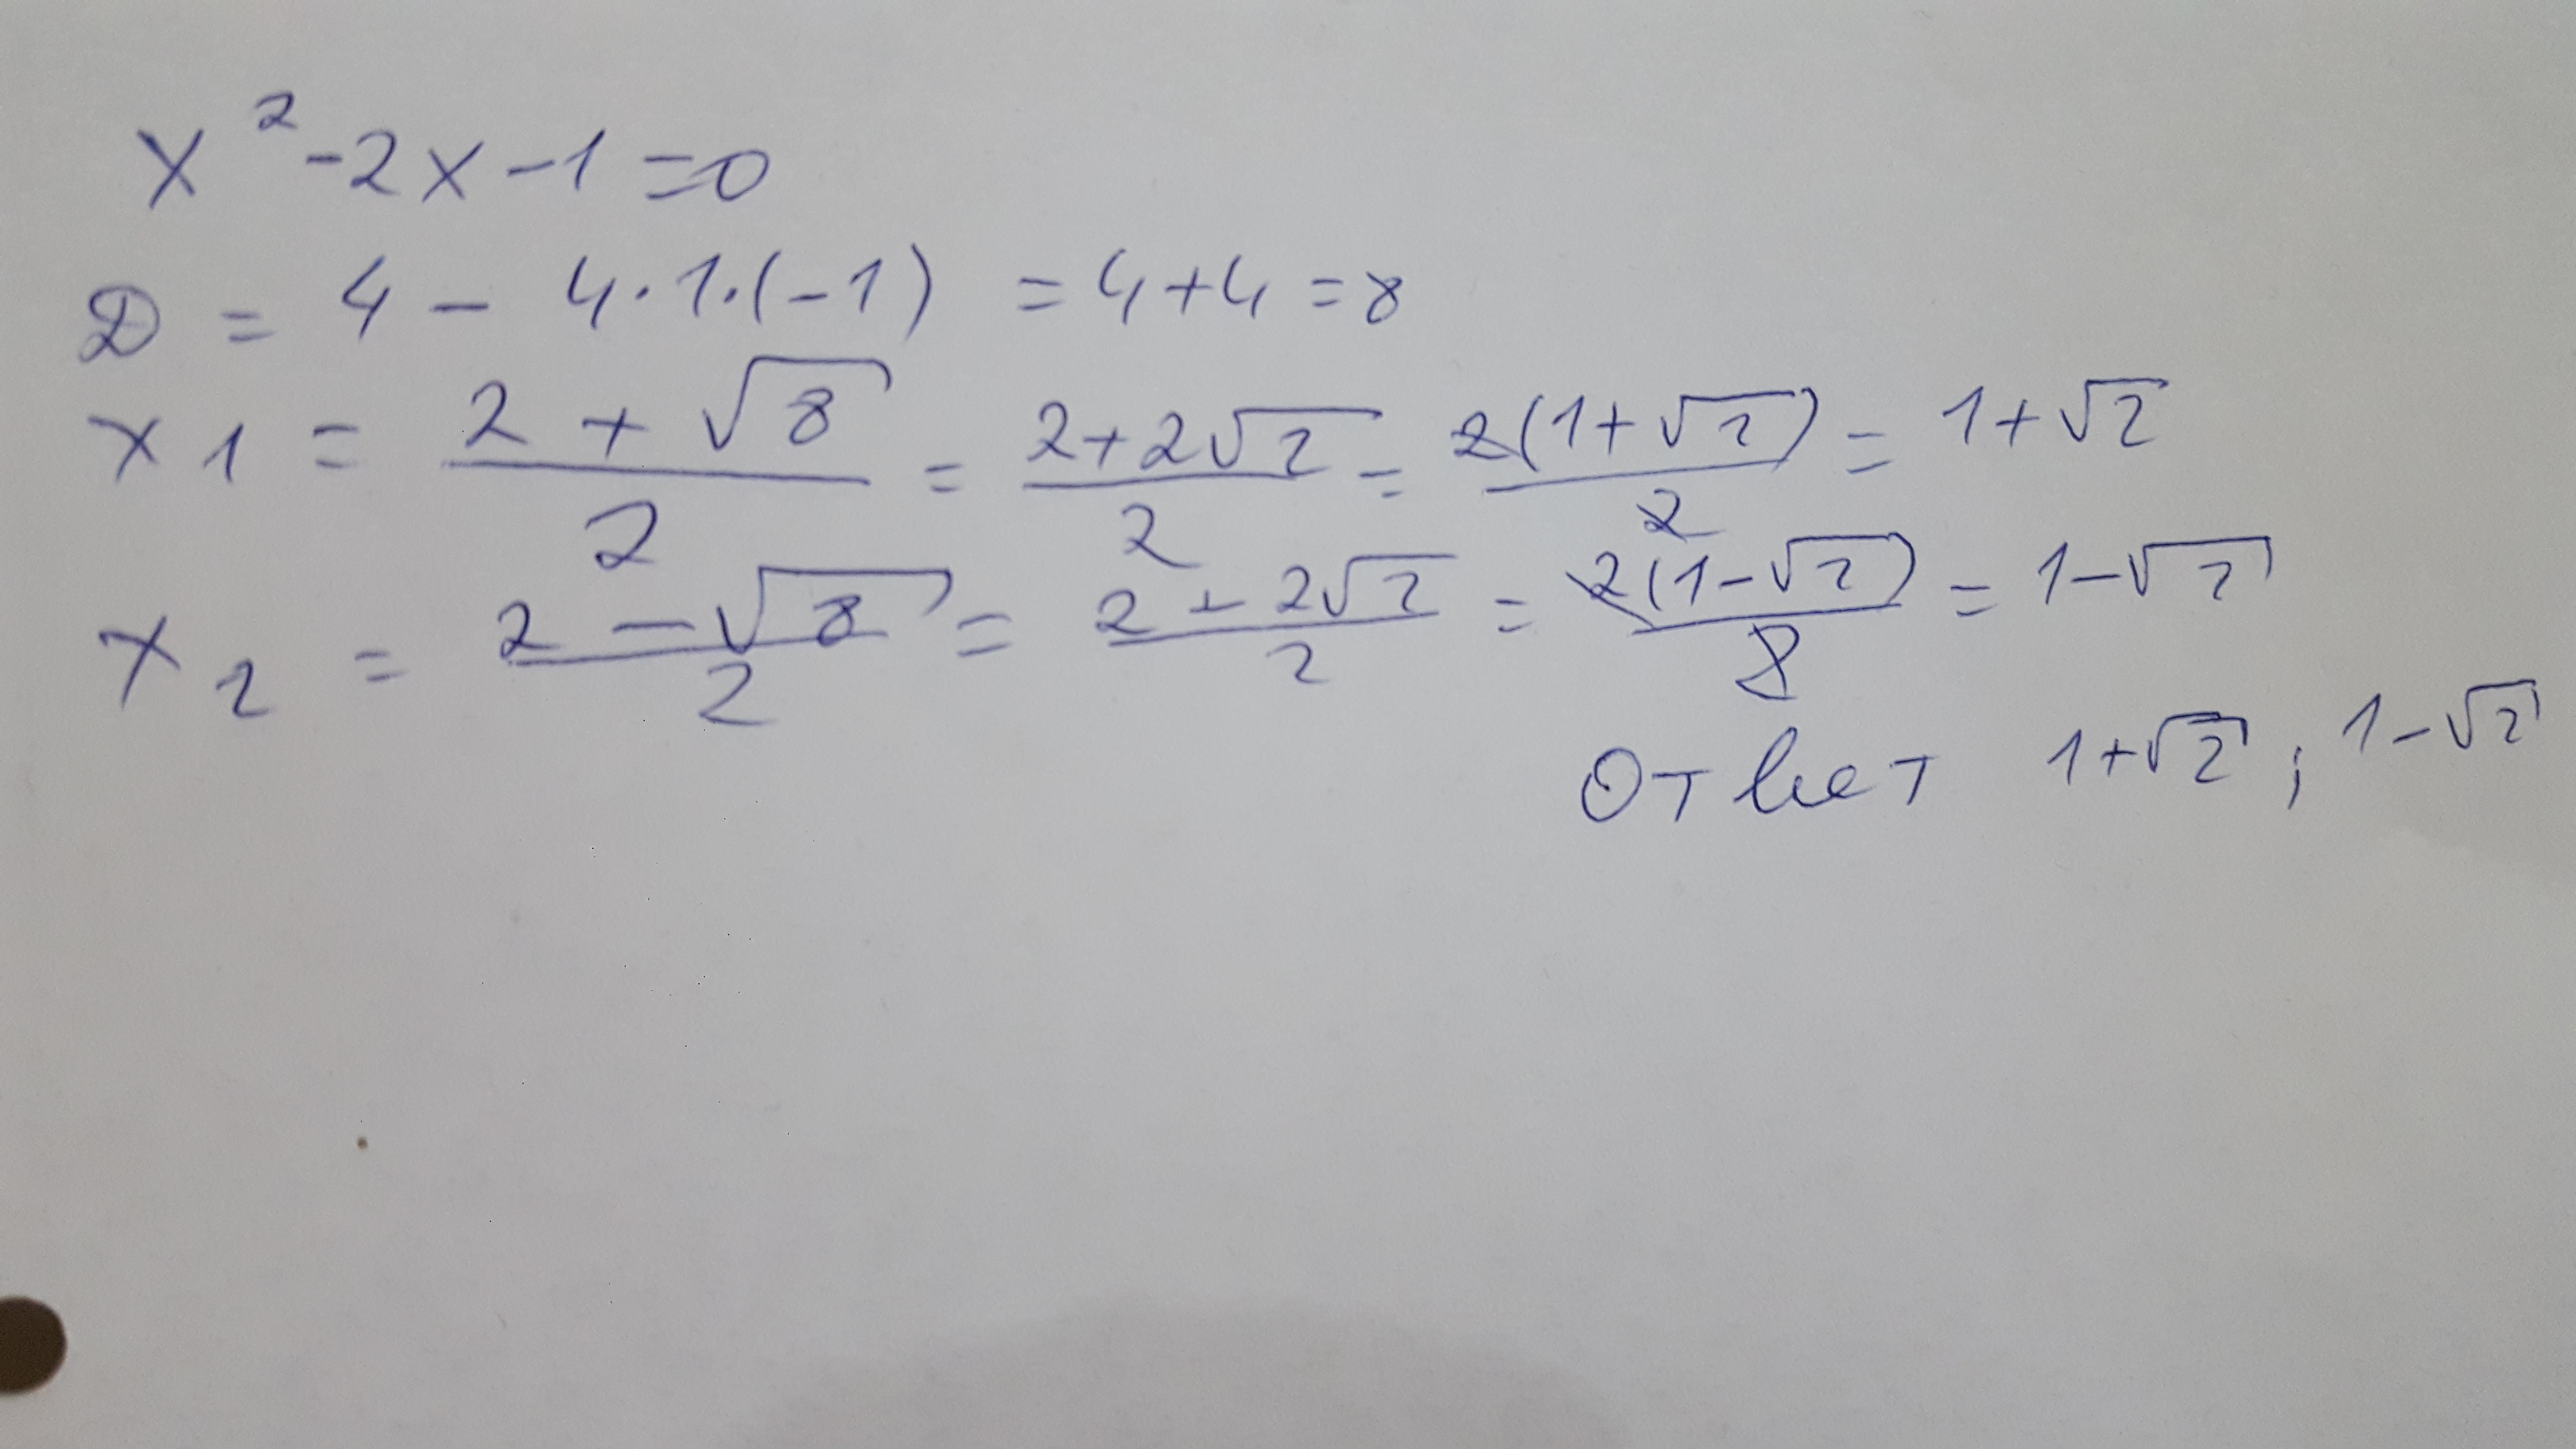 x² - 2x - 1 = 0
D = 4 - 4·1·(-1) = 4+4 = 8
x1 = (2 + √8)/2 = (2+2√2)/2 = 2(1+√2)/2 = 1+√2
x2 = (2 - √8)/2 = (2 - 2√2)/2 = 2(1-√2)/2 = 1-√2
Ответ 1+√2 ; 1-√2